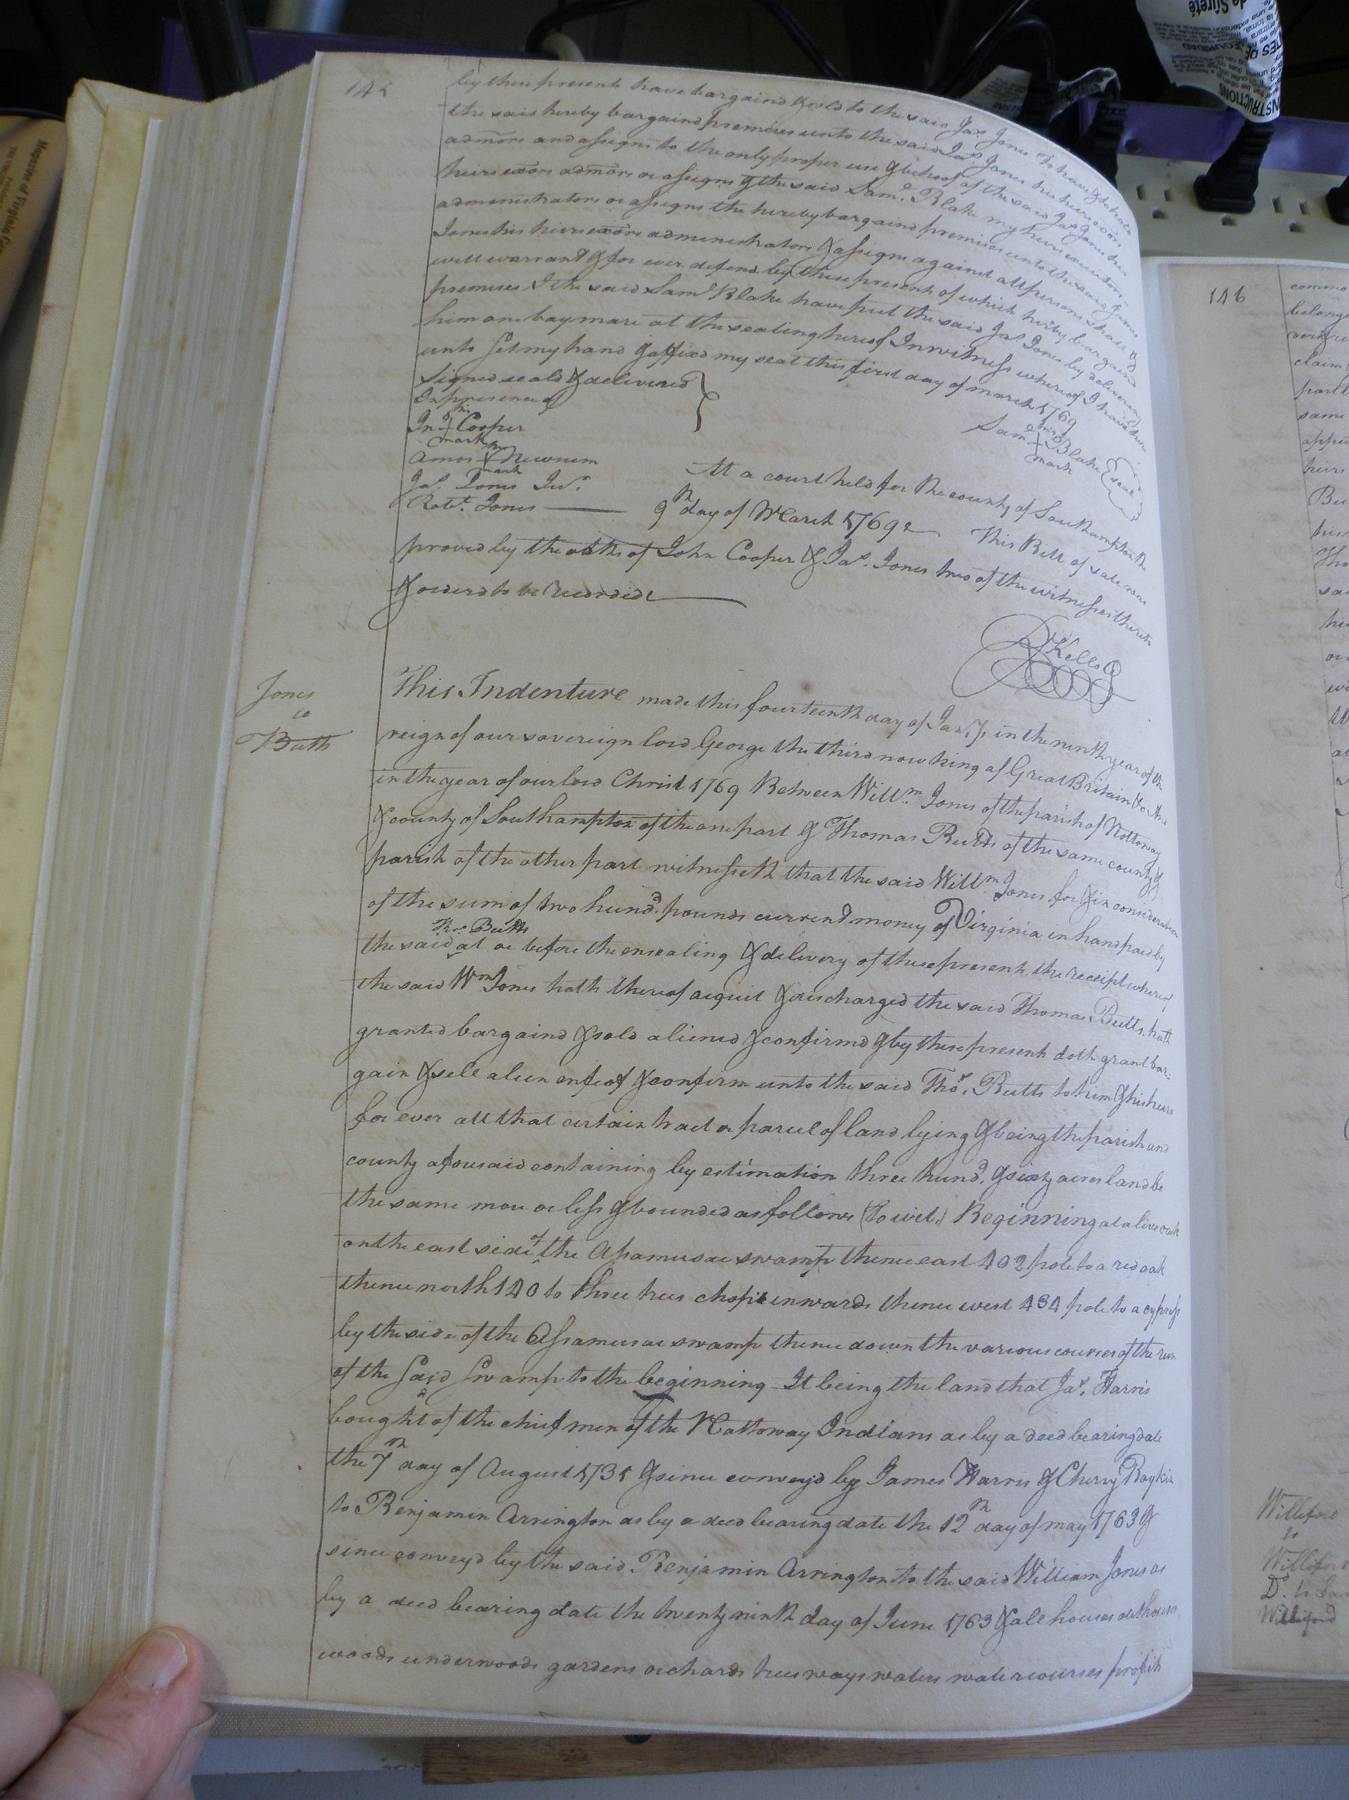 145
by these present have bargaind & sold to the said Jas. Jones To have & to hold
the said hereby bargaind premises unto the said Jas. Jones his heirs exors
admors and assigns to the only proper use & behoof of the said Jas. Jones his
heirs exors admors or assigns & the said Saml. Blake my heirs executors
administrators or assigns the hereby bargaind premises unto the said James
Jones his heirs exors administrators & assigns against all persons shall &
will warrant & for ever defend by these present of which hereby bargaind
premises I the said Saml Blake have put the said Jas Jones by delivering
him one bay mare at the sealing hereof In witness whereof I have here
unto set my hand & affixd my seal this first day of march 1769
Signed seald & delivered
In presence of
Saml his Blake seal
mark
Jno his Cooper
mark
Amos his Newsum
mark
Jas. Jones Jur.
Robt. Jones
At a court held for the county of Southampton the
9th day of March 1769
This Bill of sale was
proved by the oaths of John Cooper & Jas. Jones two of the witnesses thereto
& ordered to be recorded
RKello
Jones
to
Butts
This Indenture made this fourteenth day of Jany. in the ninth year of the
reign of our sovereign lord George the third now king of Great Britain &c And
in the year of our lord Christ 1769 Between Willm. Jones of the parish of Nottoway
& county of Southampton of the one part & Thomas Butts of the same county &
parish of the other part witnesseth that the said Willm Jones for & in consideration
of the sum of two hund. pounds current money of Virginia in hand paid by
the said Thos Butts at or before the ensealing & delivery of these present the receipt whereof
the said Wm Jones hath thereof acquit & discharged the said Thomas Butts, hath
granted bargaind & sold aliened & confirmd & by these present doth grant bar-
gain & sell alien enfeof & confirm unto the said Thos. Butts to him & his heirs
for ever all that certain tract or parcel of land lying & being the parish and
county aforesaid containing by estimation three hund. & sixty acres land be
the same more or less & bounded as follows (to wit,) Beginning at a live oak
on the east side of the Assamusac swamp thence east 402 pole to a red oak
thence north 140 to three trees chopt inwards thence west 434 pole to a cypress
by the side of the Assamusac swamp thence down the various courses of the run
of the said swamp to the beginning It being the land that Jas. Harris
bought of the chief men of the Nattoway Indians as by a deed bearing date
the 7th day of August 1735 & since conveyd by James Harris & Cherry Boykin
to Benjamin Arrington as by a deed bearing date the 12th day of may 1763 &
since conveyd by the said Benjamin Arrington to the said William Jones as
by a deed bearing date the twenty ninth day of June 1763 & all houses outhouses
woods underwoods gardens orchards trees ways waters watercourses profits
146
commo
belong
claim
part
same
appu
heirs
Bu
heirs
Tho
sai
Williford
to
Williford
Do. to
Williford
Magazine of Virginia
INSTRUCTIONS
de Sûreté